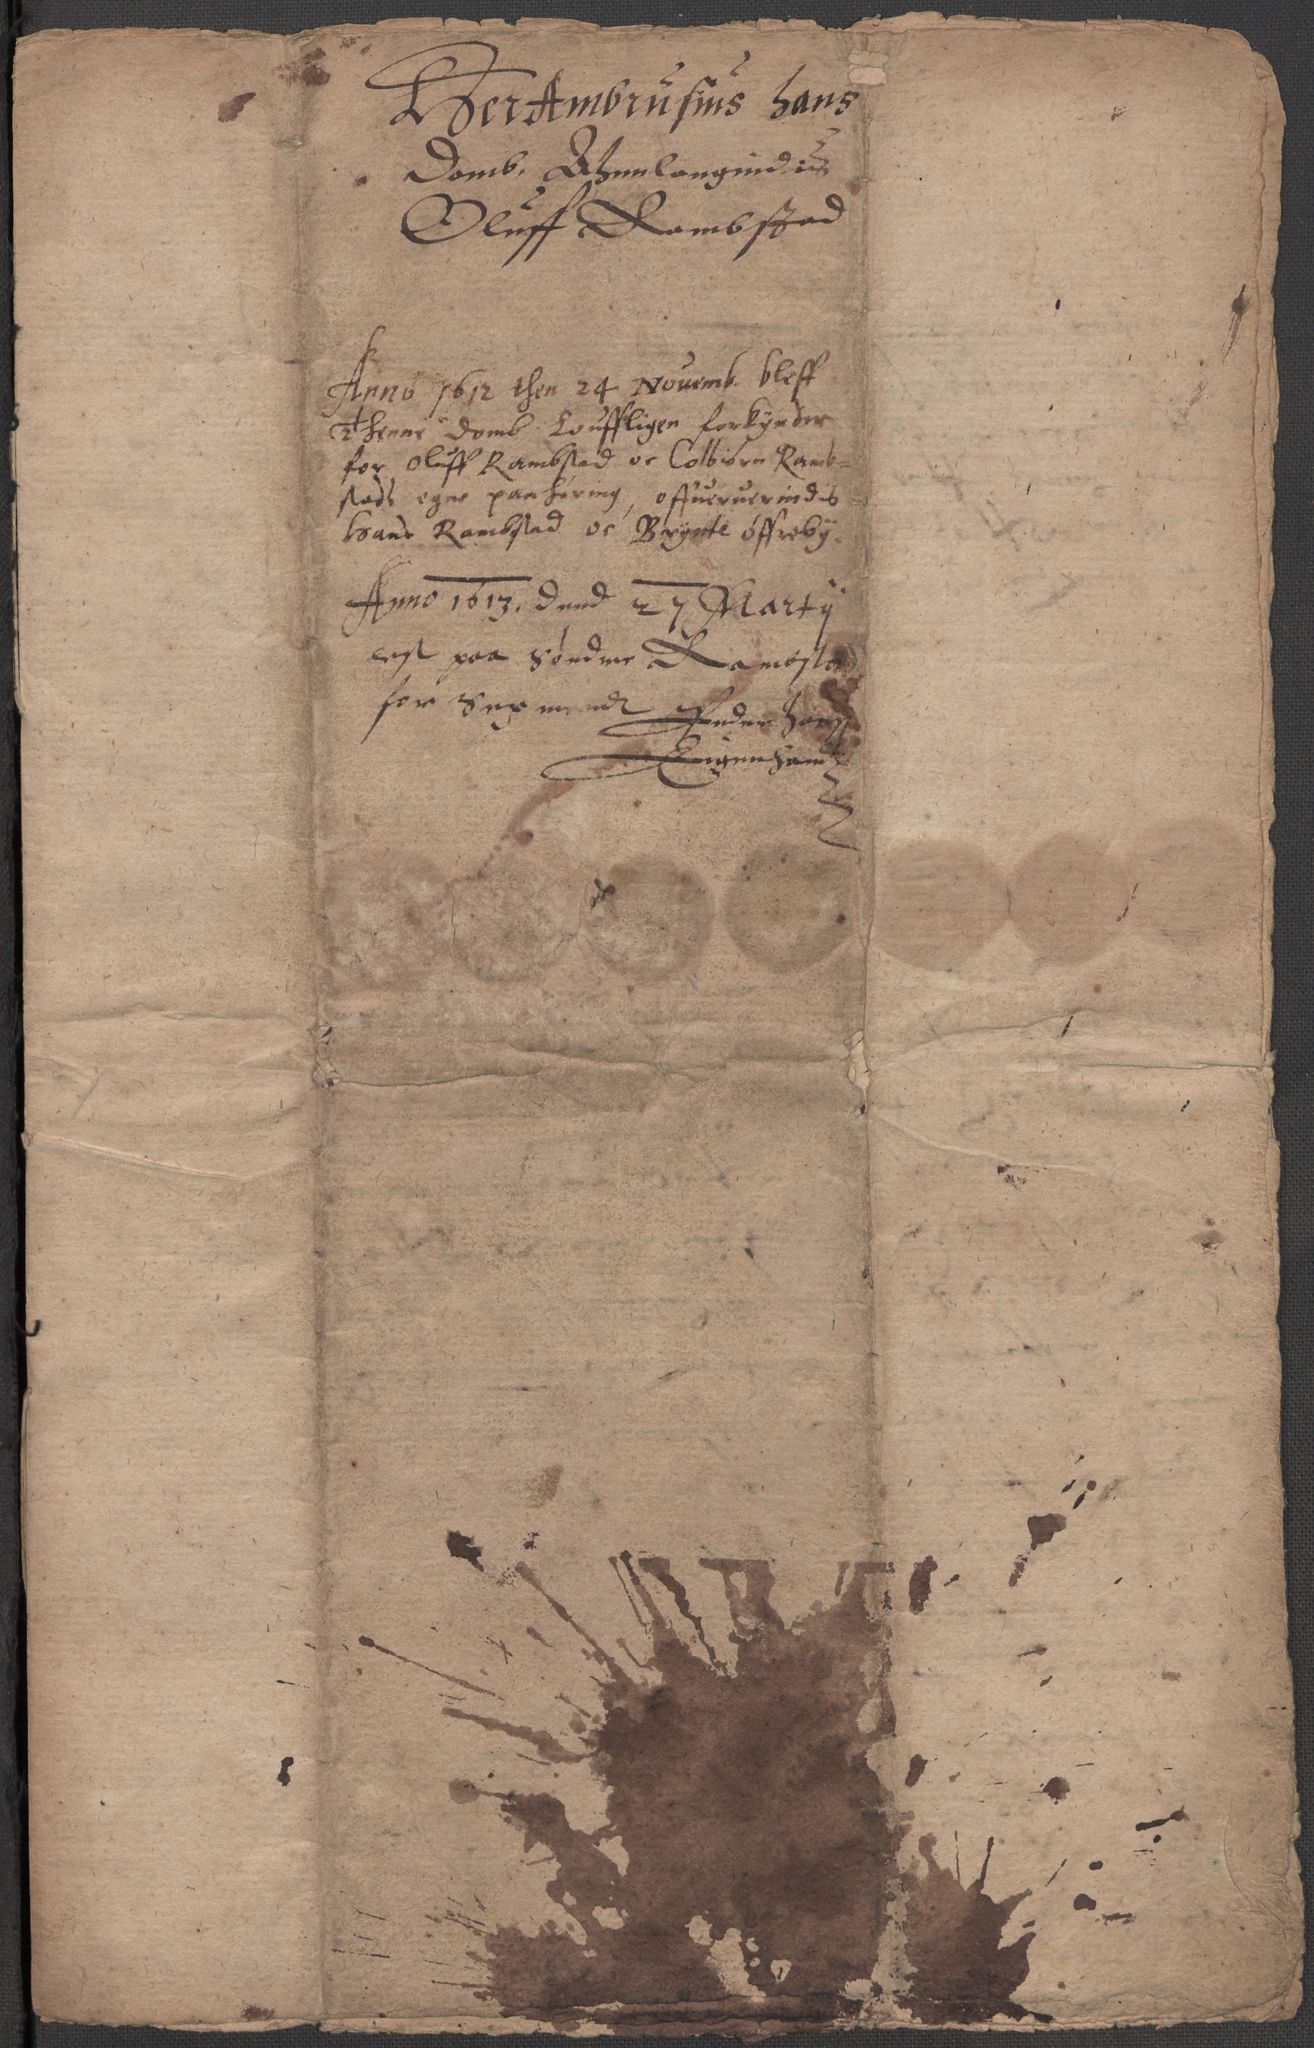 Her Ambrusius hans
Domb. Ahnlangindis
Oluff Rambstad
Anno 1612 then 24 Nouemb. bleff
thenne Domb Louffligen forkynder
for Oluff Rambstad oc Colbiørn Ramb-
stads egne paahøring, offueruerindis
Hans Rambstad oc Brynte øffreby.
Anno 1613. Dend 27 Martij
lest paa Søndre Rambstad
for Sex mend
Peder hanß
Eigenhand